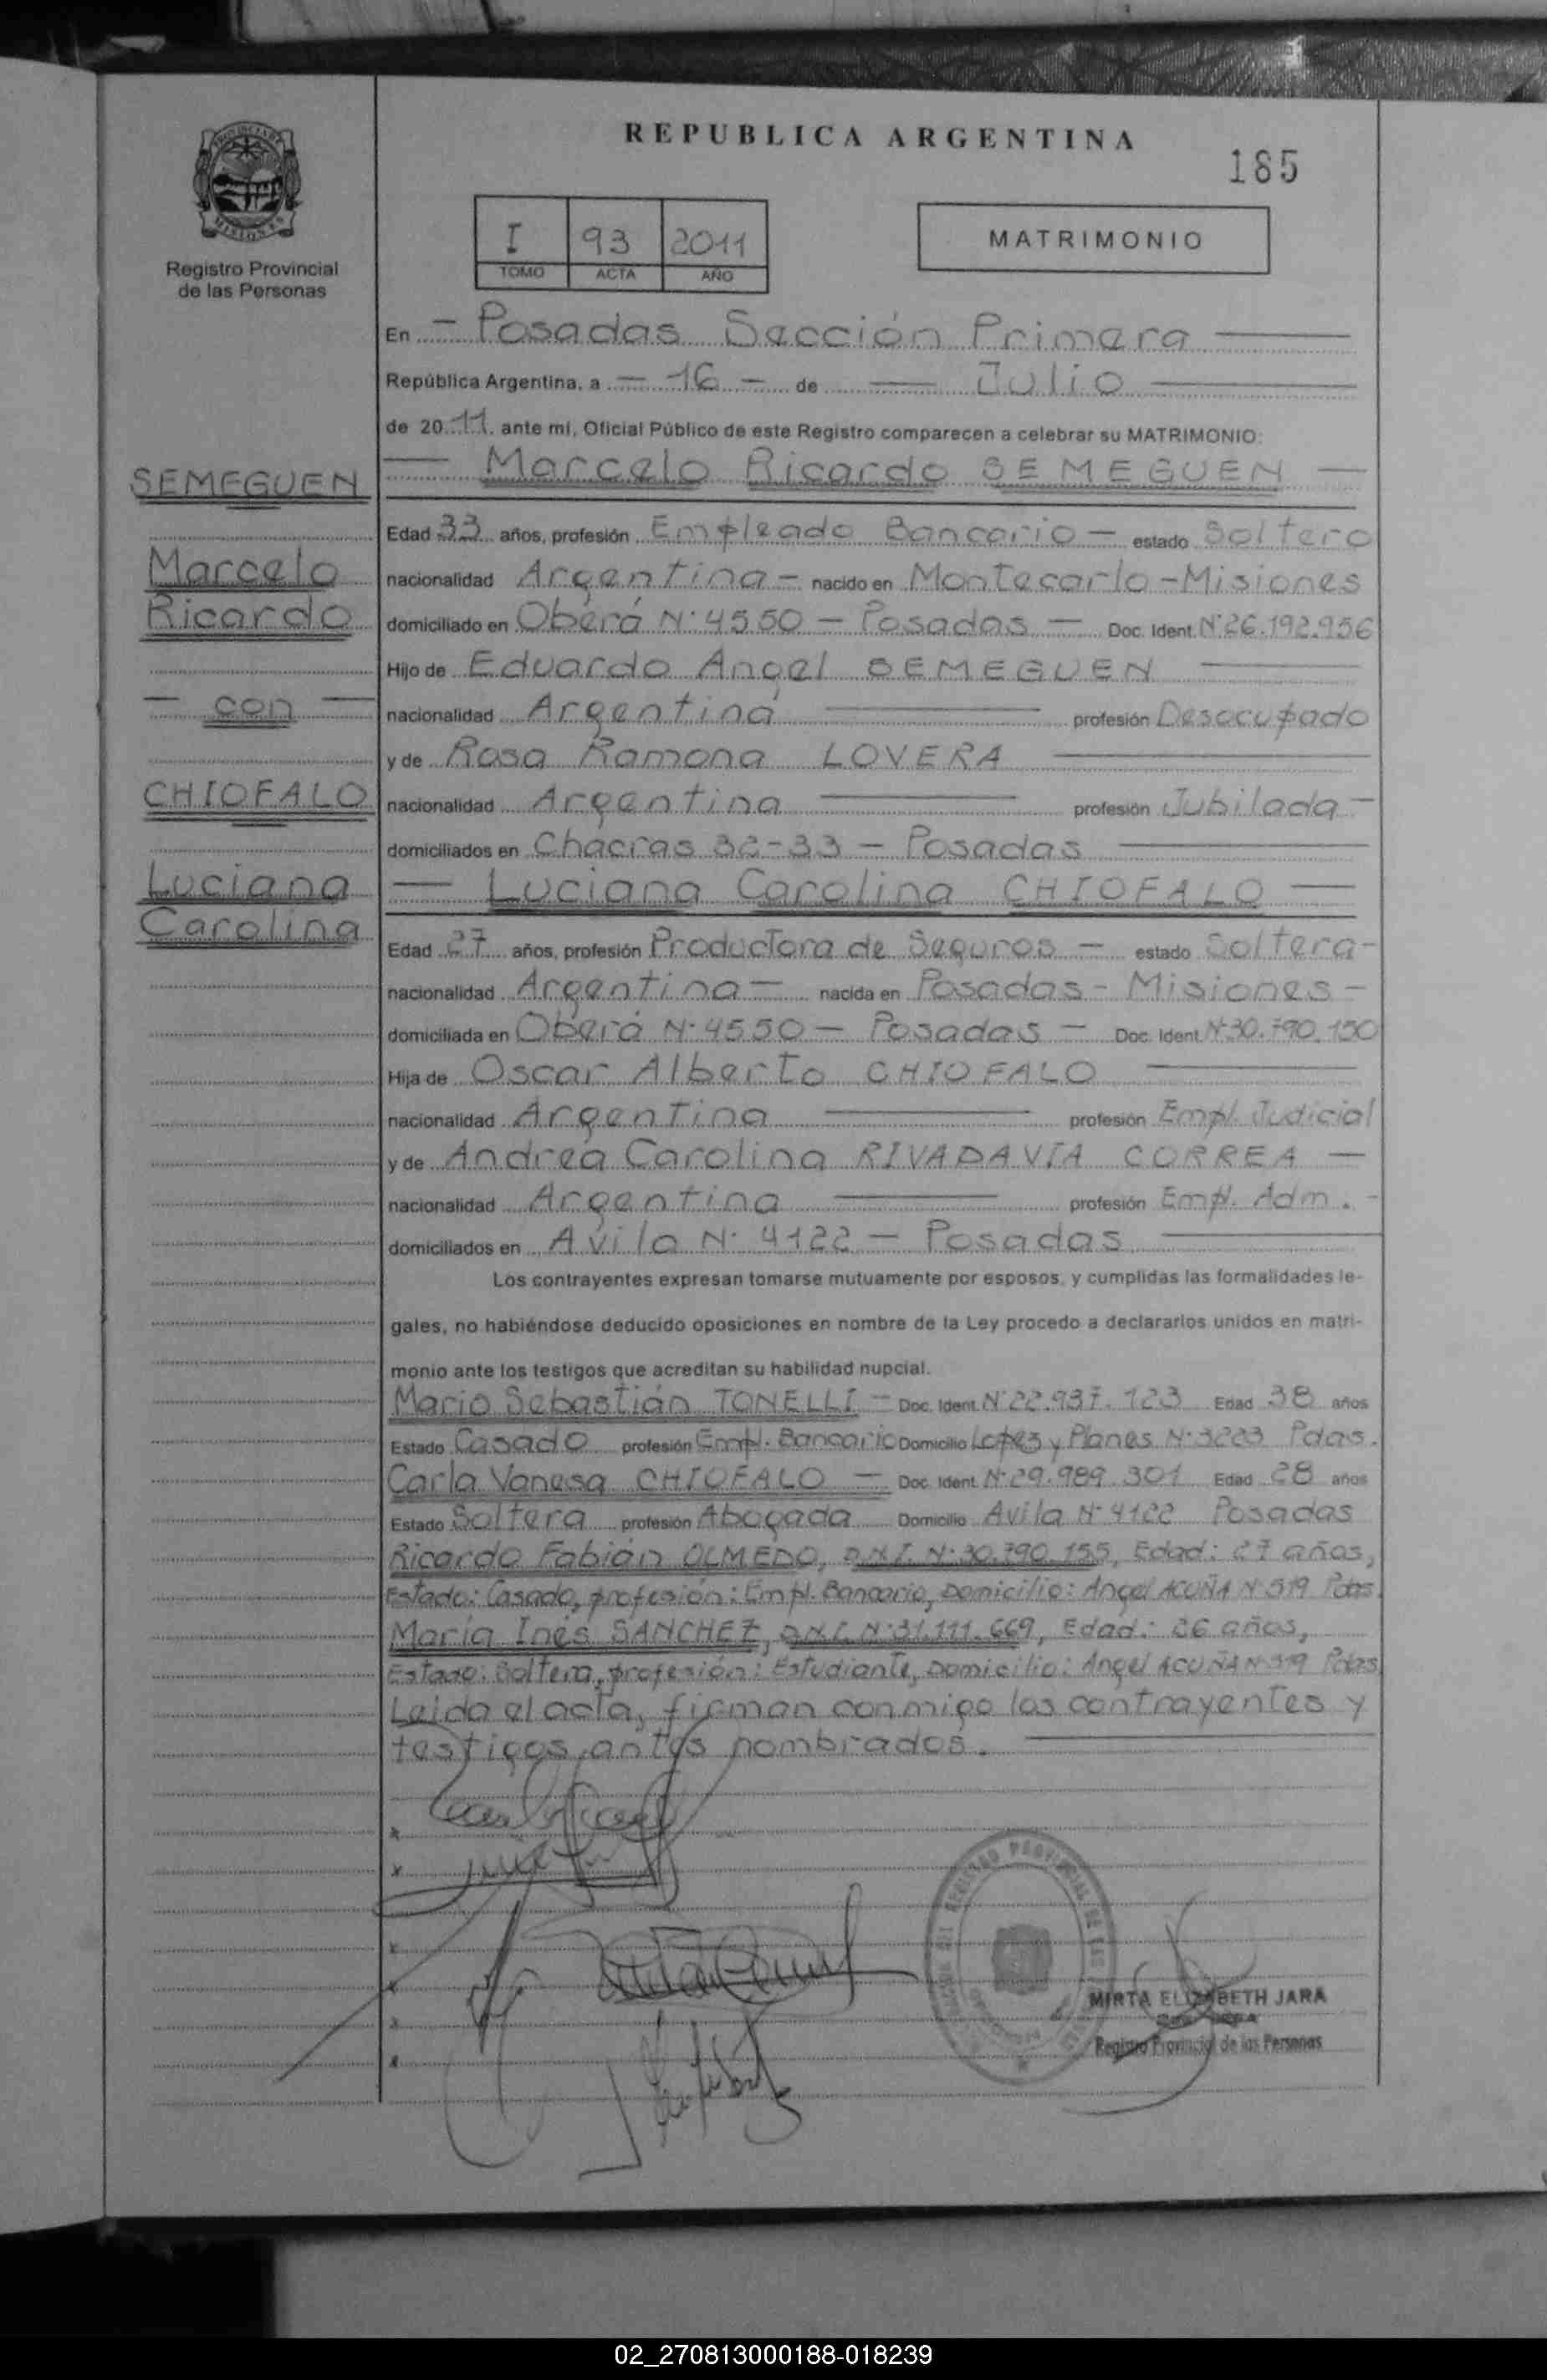 REPUBLICA ARGENTINA
185
MISIONES
Registro Provincial
de las Personas
I 93 2011
TOMO ACTA AÑO
MATRIMONIO
En - Posadas Sección Primera
República Argentina, a - 16 - de Julio
de 2011 ante mi, Oficial Público de este Registro comparecen a celebrar su MATRIMONIO:
Marcelo Ricardo SEMEGUEN
SEMEGUEN
Marcelo
Ricardo
- con -
CHIOFALO
Luciana
Carolina
Edad 33 años, profesión Empleado Bancario - estado Soltero
nacionalidad Argentina - nacido en Montecarlo - Misiones
domiciliado en Oberá N° 4550 - Posadas - Doc. Ident. N° 26.192.956
Hijo de Eduardo Angel SEMEGUEN
nacionalidad Argentina profesión Desocupado
y de Rosa Ramona LOVERA
nacionalidad Argentina profesión Jubilada -
domiciliados en Chacras 32-33 - Posadas
Luciana Carolina CHIOFALO
Edad 27 años, profesión Productora de Seguros - estado Soltera -
nacionalidad Argentina - nacida en Posadas - Misiones -
domiciliada en Oberá N° 4550 - Posadas - Doc. Ident. N° 30.790.150
Hija de Oscar Alberto CHIOFALO
nacionalidad Argentina profesión Empl. Judicial
y de Andrea Carolina RIVADAVIA CORREA -
nacionalidad Argentina profesión Empl. Adm. -
domiciliados en Avila N° 4122 - Posadas
Los contrayentes expresan tomarse mutuamente por esposos, y cumplidas las formalidades le-
gales, no habiéndose deducido oposiciones en nombre de la Ley procedo a declararlos unidos en matri-
monio ante los testigos que acreditan su habilidad nupcial.
Mario Sebastián TONELLI - Doc. Ident. N° 22.937.123 Edad 38 años
Estado Casado profesión Empl. Bancario Domicilio Lopez y Planes N° 3223 Pdas.
Carla Vanesa CHIOFALO - Doc. Ident. N° 29.989.301 Edad 28 años
Estado Soltera profesión Abogada Domicilio Avila N° 4122 Posadas
Ricardo Fabián OLMEDO, D.N.I. N° 30.790.155, Edad: 27 años,
Estado: Casado, profesión: Empl. Bancario, Domicilio: Angel ACUÑA N° 519 Pdas.
María Inés SANCHEZ, D.N.I. N° 31.111.669, Edad: 26 años,
Estado: Soltera, profesión: Estudiante, Domicilio: Angel ACUÑA N° 519 Pdas
Leida el acta, firman conmigo los contrayentes y
testigos antes nombrados.
MIRTA ELIZABETH JARA
Registro Provincial de las Personas
02_270813000188-018239